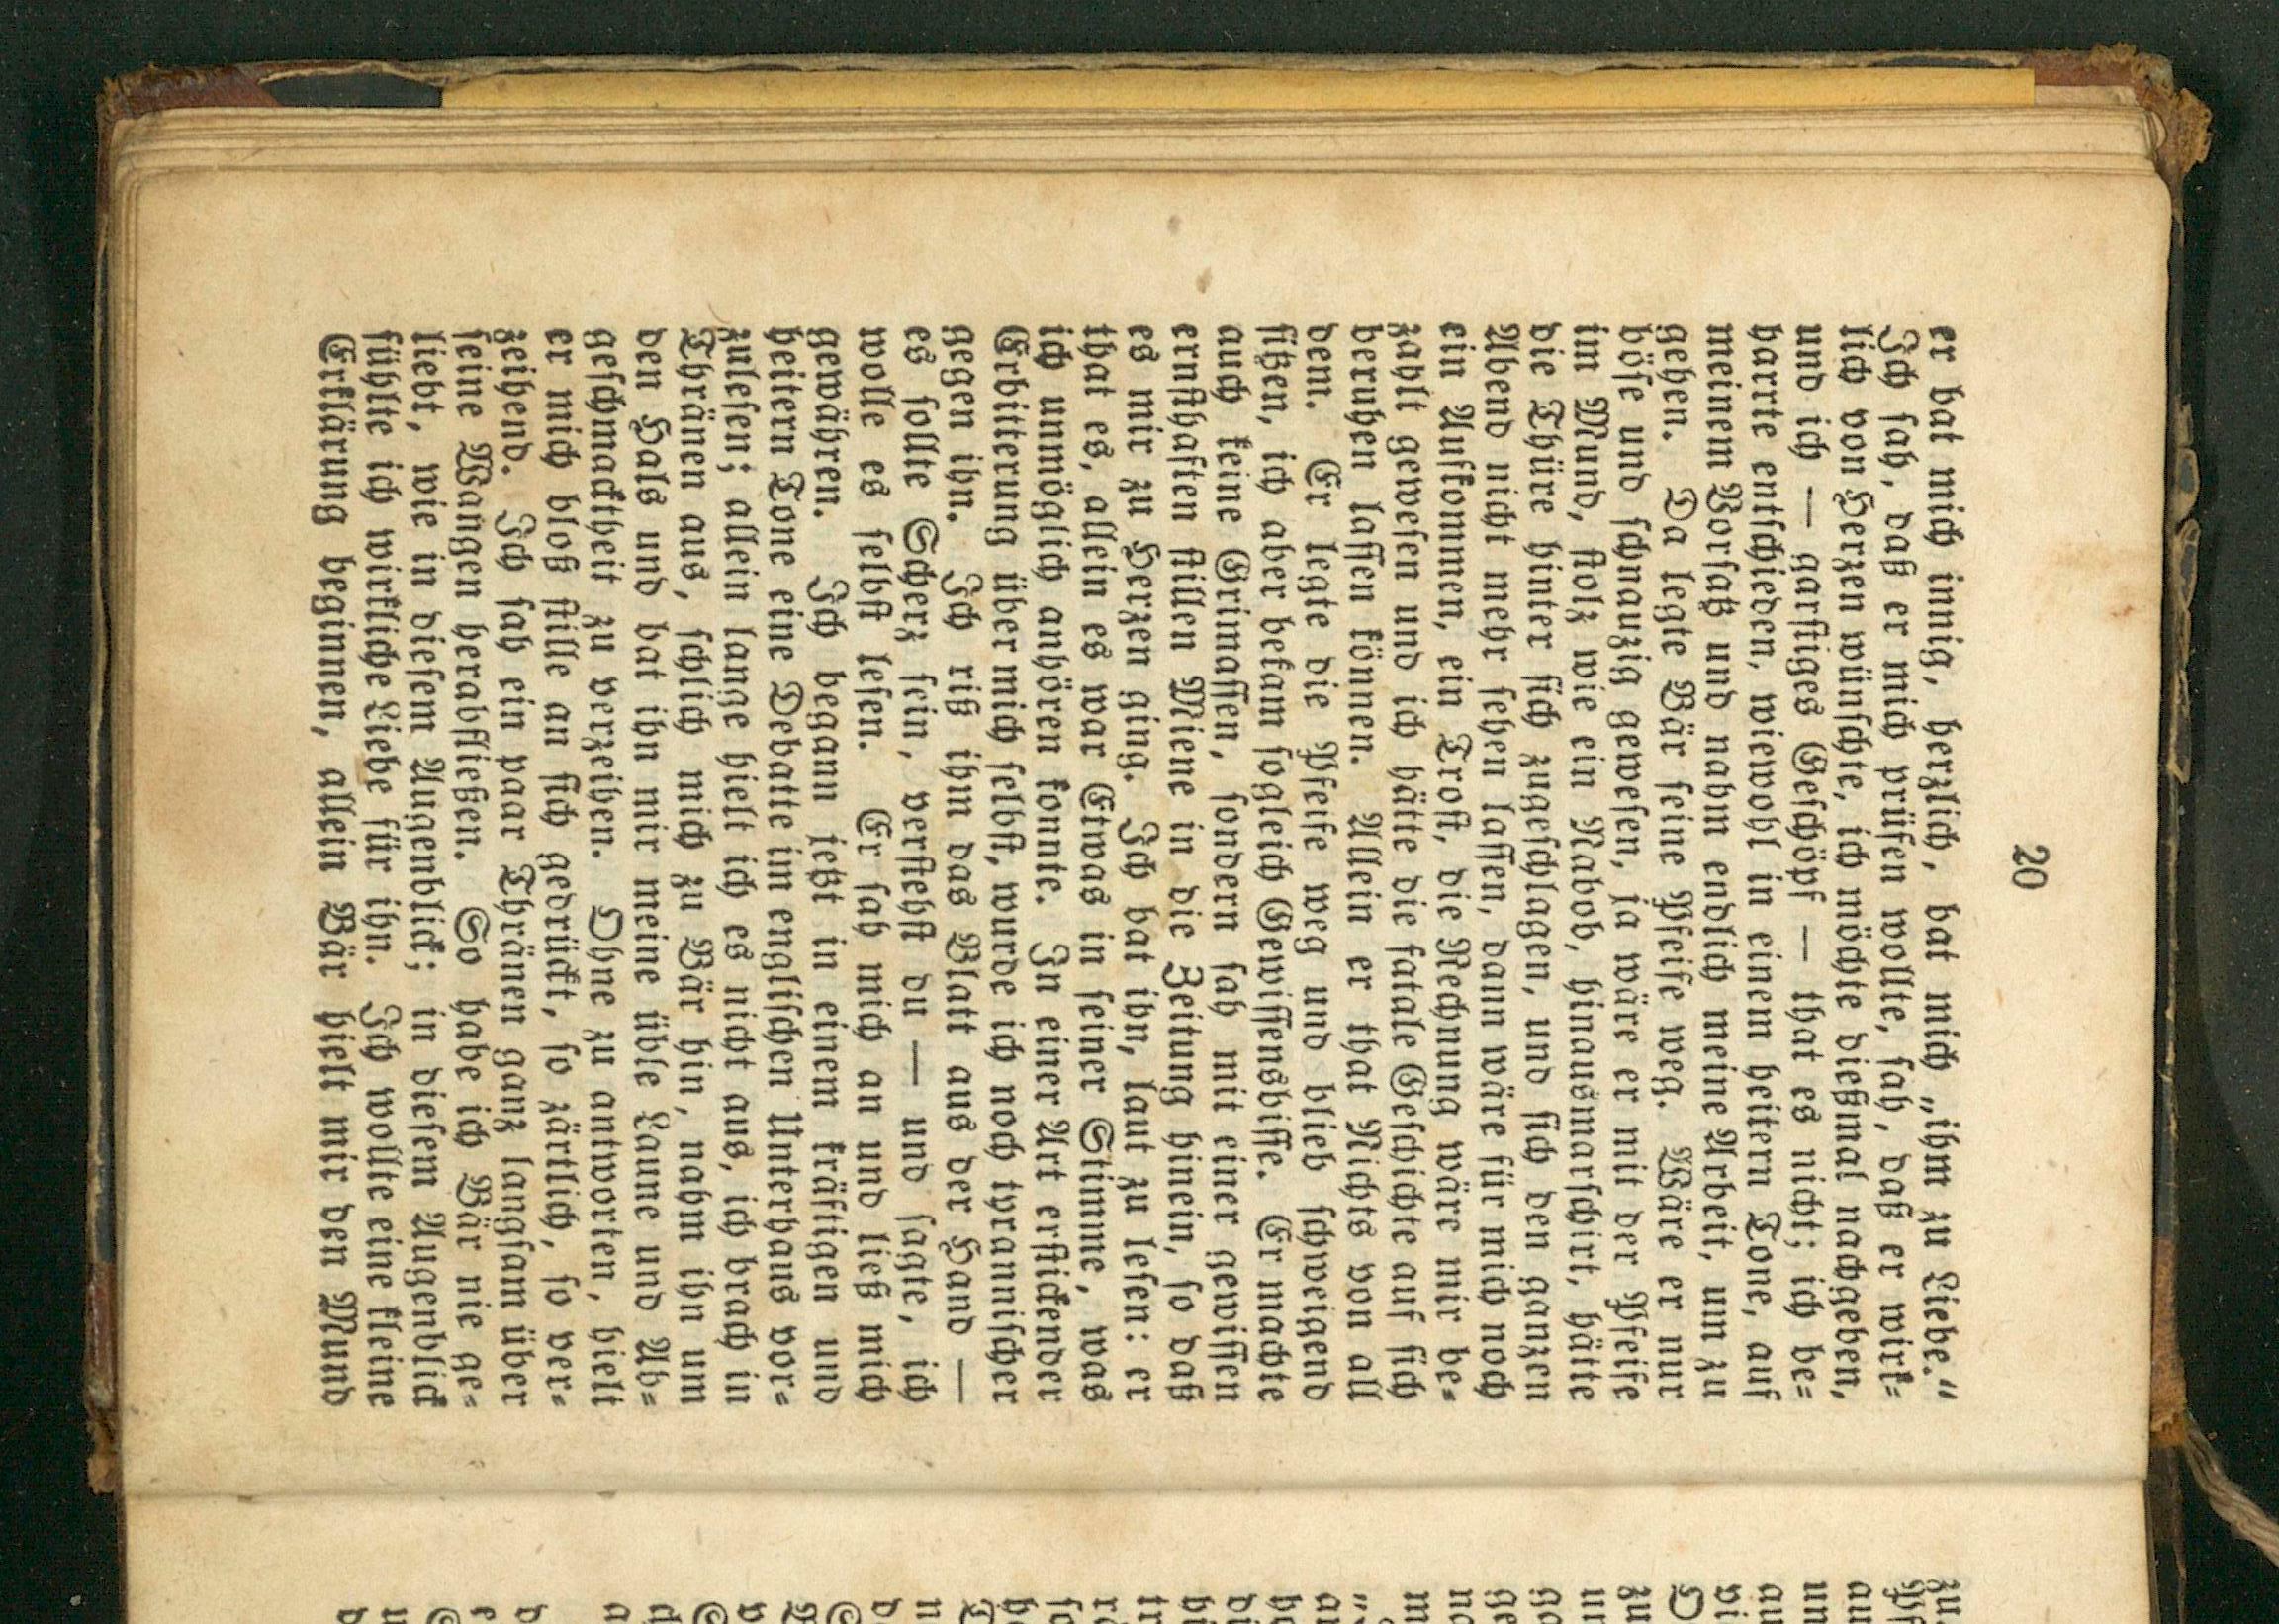 20
er bat mich innig, herzlich, bat mich „ihm zu Liebe.“
Ich sah, daß er mich prüfen wollte, sah, daß er wirk=
lich von Herzen wünschte, ich möchte dießmal nachgeben,
und ich — garstiges Geschöpf — that es nicht; ich be=
harrte entschieden, wiewohl in einem heitern Tone, auf
meinem Vorsatz und nahm endlich meine Arbeit, um zu
gehen. Da legte Bär seine Pfeife weg. Wäre er nur
böse und schnauzig gewesen, ja wäre er mit der Pfeife
im Mund, stolz wie ein Nabob, hinausmarschirt, hätte
die Thüre hinter sich zugeschlagen, und sich den ganzen
Abend nicht mehr sehen lassen, dann wäre für mich noch
ein Aufkommen, ein Trost, die Rechnung wäre mir be=
zahlt gewesen und ich hätte die fatale Geschichte auf sich
beruhen lassen können. Allein er that Nichts von all
dem. Er legte die Pfeife weg und blieb schweigend
sitzen, ich aber bekam sogleich Gewissensbisse. Er machte
auch keine Grimassen, sondern sah mit einer gewissen
ernsthaften stillen Miene in die Zeitung hinein, so daß
es mir zu Herzen ging. Ich bat ihn, laut zu lesen: er
that es, allein es war Etwas in seiner Stimme, was
ich unmöglich anhören konnte. In einer Art erstickender
Erbitterung über mich selbst, wurde ich noch tyrannischer
gegen ihn. Ich riß ihm das Blatt aus der Hand —
es sollte Scherz sein, verstehst du — und sagte, ich
wolle es selbst lesen. Er sah mich an und ließ mich
gewähren. Ich begann jetzt in einem kräftigen und
heitern Tone eine Debatte im englischen Unterhaus vor=
zulesen; allein lange hielt ich es nicht aus, ich brach in
Thränen aus, schlich mich zu Bär hin, nahm ihn um
den Hals und bat ihn mir meine üble Laune und Ab=
geschmacktheit zu verzeihen. Ohne zu antworten, hielt
er mich bloß stille an sich gedrückt, so zärtlich, so ver=
zeihend. Ich sah ein paar Thränen ganz langsam über
seine Wangen herabfließen. So habe ich Bär nie ge=
liebt, wie in diesem Augenblick; in diesem Augenblick
fühlte ich wirkliche Liebe für ihn. Ich wollte eine kleine
Erklärung beginnen, allein Bär hielt mir den Mund